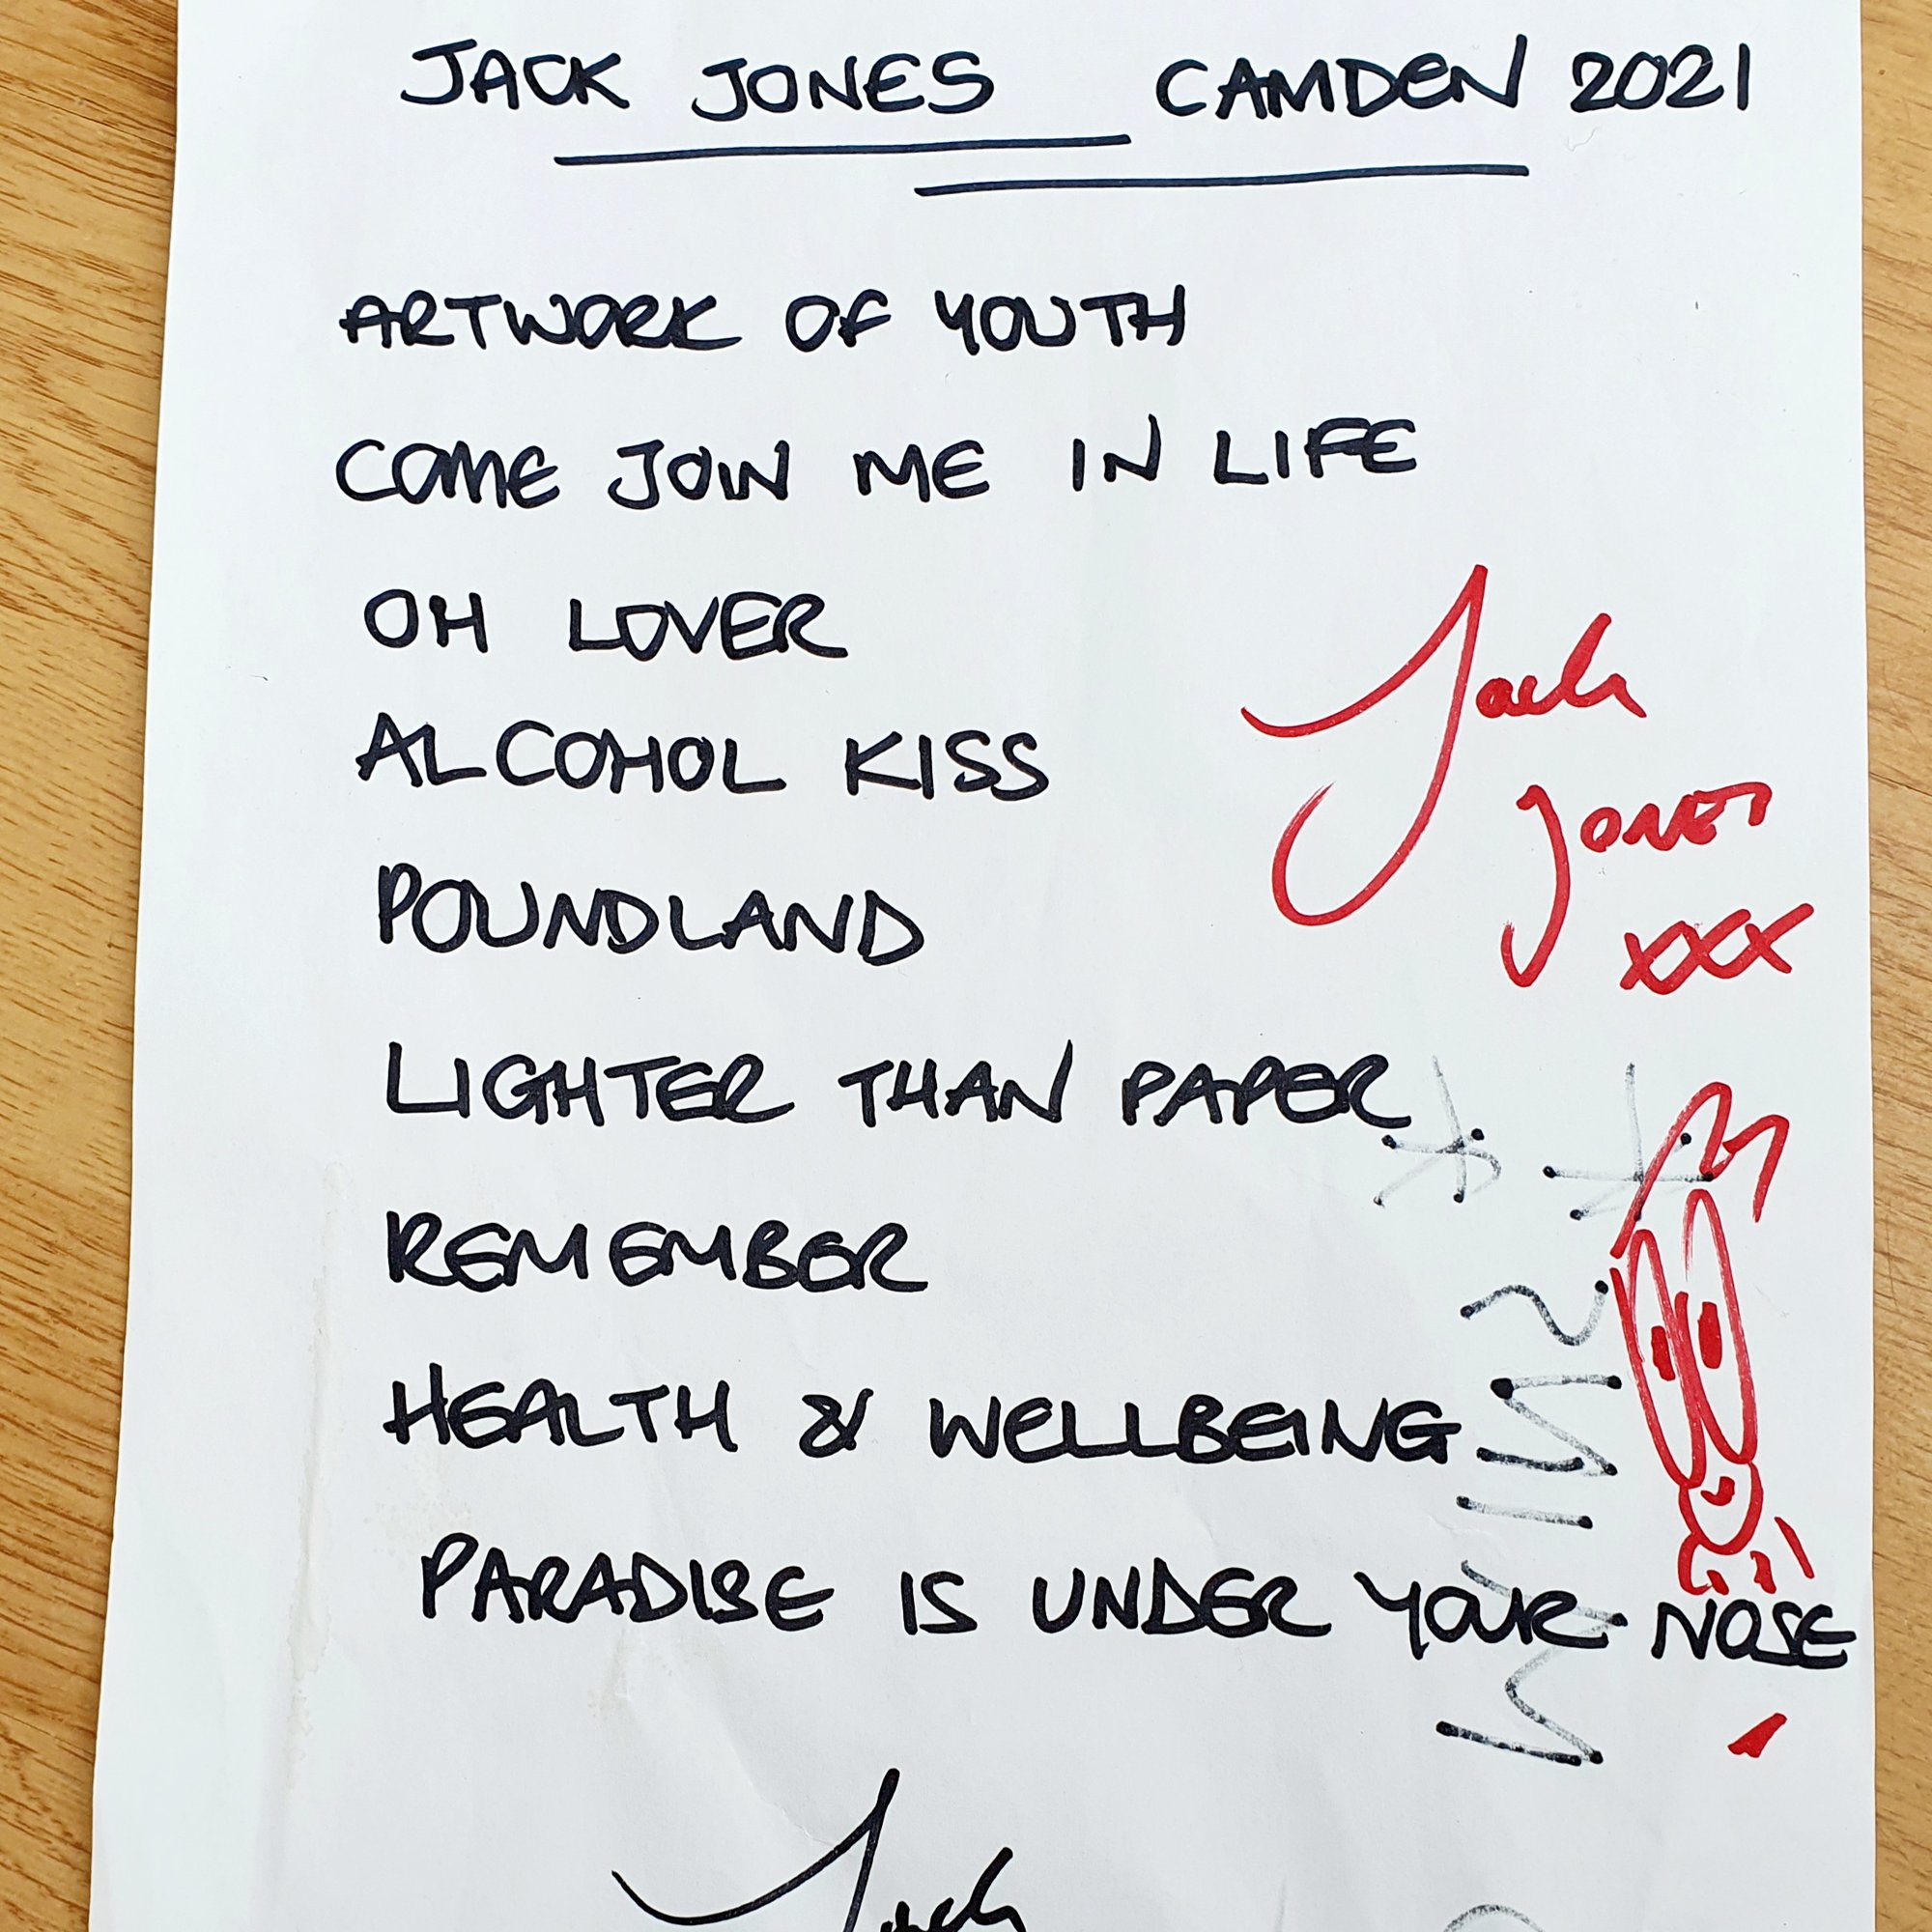 JACK JONES CAMDEN 2021
ARTWORK OF YOUTH
COME JOIN ME IN LIFE
OH LOVER
ALCOHOL KISS
POUNDLAND
LIGHTER THAN PAPER
REMEMBER
HEALTH & WELLBEING
PARADISE IS UNDER YOUR NOSE
Jack
Jones
xxx
Jack